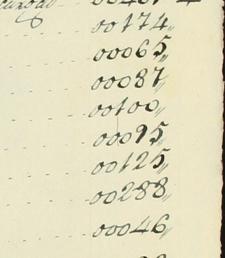 00174„
00065„
00087„
00100„
00095„
00125„
00288„
00046„